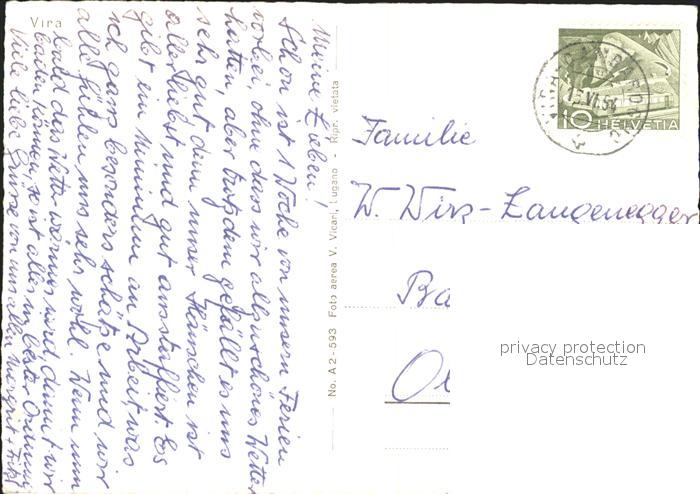 Vira
Meine Lieben!
Schon ist 1 Woche von unsern Ferien
vorbei, ohne dass wir allzu schönes Wetter
hatten, aber trotzdem gefällt es uns
sehr gut denn unser Häuschen ist
allerliebst und gut ausstaffiert. Es
gibt ein Minimum an Arbeit was
ich ganz besonders schätze und wir
alle fühlen uns sehr wohl. Wenn nun
bald das Wetter wärmer wird, damit wir
baden können, so ist alles in bester Ordnung
Viele liebe Grüsse von uns allen
No. A 2 - 593 Foto aerea V. Vicari, Lugano - Ripr. vietata
10 HELVETIA
Familie
W. Wirz-Langenegger
Ba
Ol
privacy protection
Datenschutz